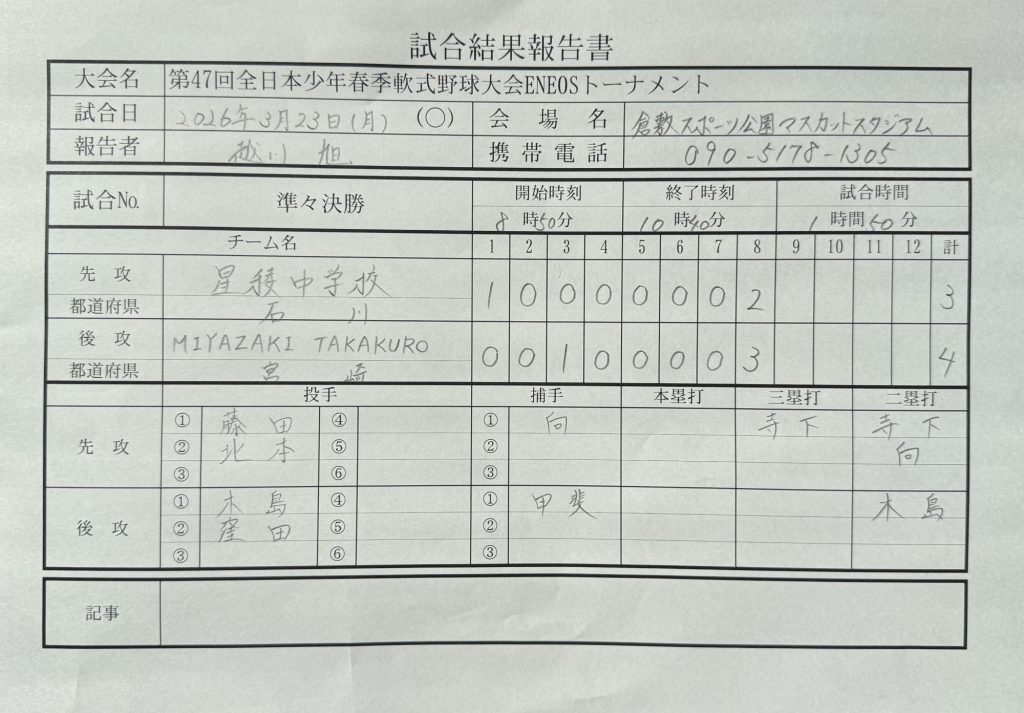 試合結果報告書
大会名 第47回全日本少年春季軟式野球大会ENEOSトーナメント
試合日 2026年3月23日(月) (〇) 会場名 倉敷スポーツ公園マスカットスタジアム
報告者 越川 旭 携帯電話 090-5178-1305
試合No. 準々決勝 開始時刻 終了時刻 試合時間
8時50分 10時40分 1時間50分
チーム名 1 2 3 4 5 6 7 8 9 10 11 12 計
先攻 星稜中学校 1 0 0 0 0 0 0 2 3
都道府県 石川
後攻 MIYAZAKI TAKAKURO 0 0 1 0 0 0 0 3 4
都道府県 宮崎
投手 捕手 本塁打 三塁打 二塁打
先攻 ① 藤田 ④ ① 向 寺下 寺下
② 北本 ⑤ ② 向
③ ⑥ ③
後攻 ① 木島 ④ ① 甲斐 木島
② 窪田 ⑤ ②
③ ⑥ ③
記事